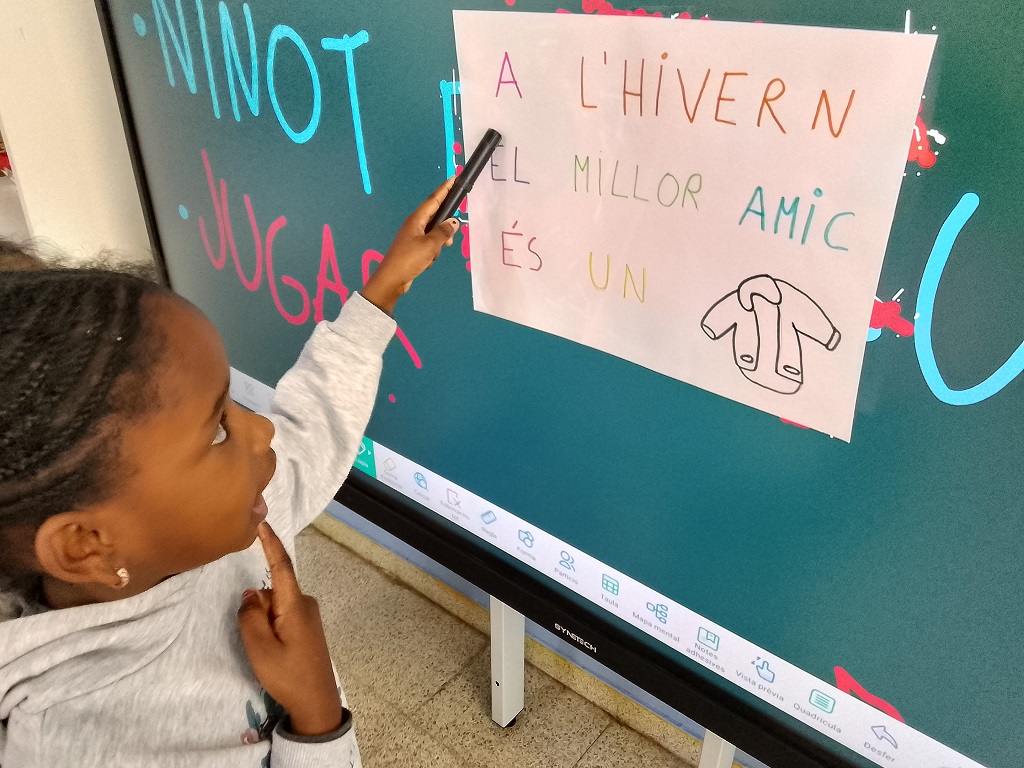 NINOT
JUGAR
A L'HIVERN
EL MILLOR AMIC
ÉS UN
Taula
Mapa mental
Notes
adhesives
Vista prèvia
Quadrícula
Desfer